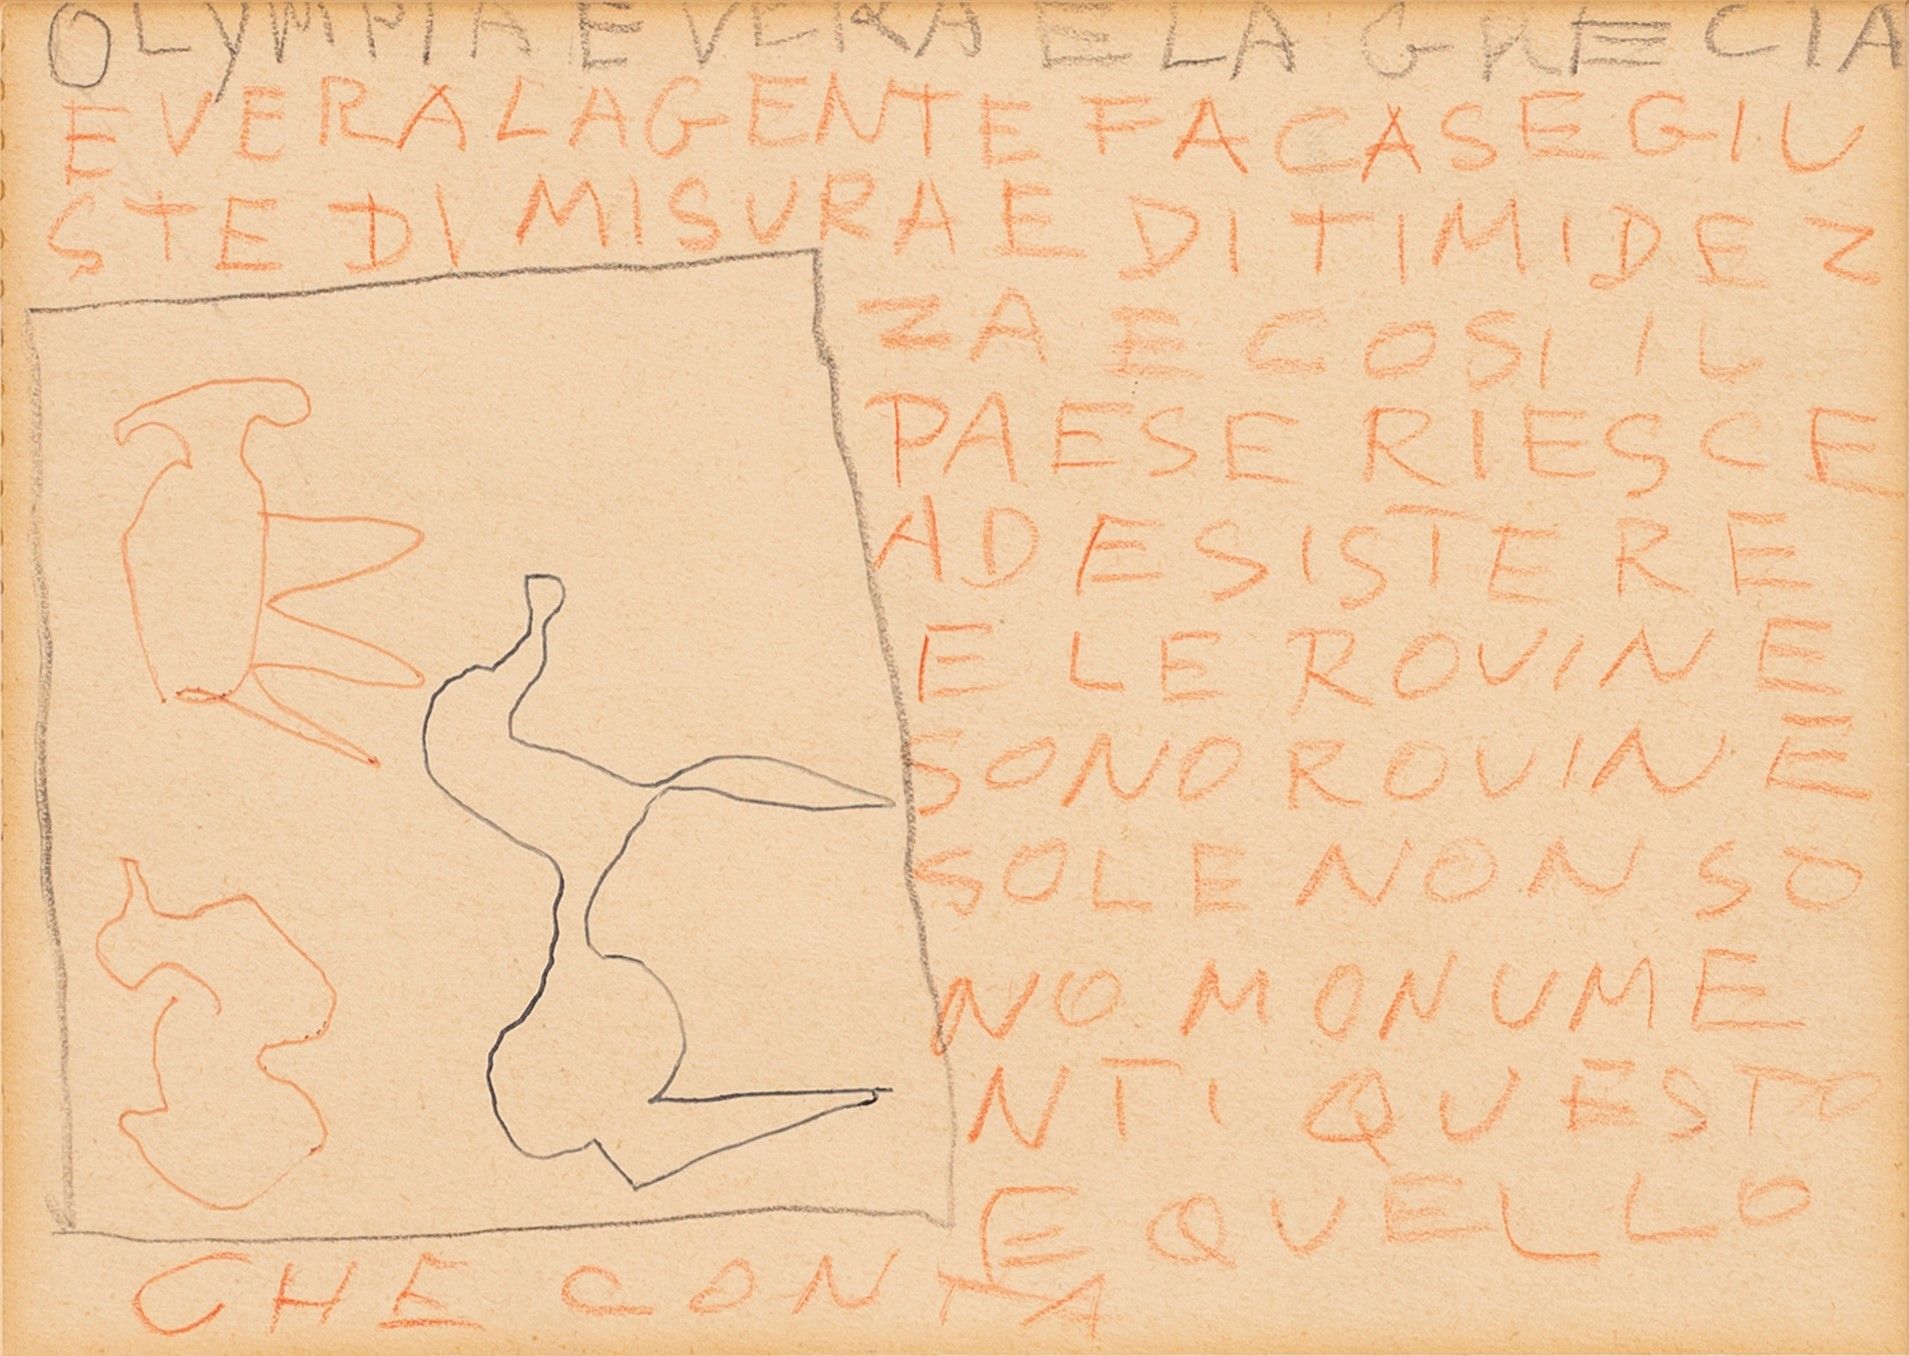 OLYMPIA E VERA E LA GRECIA
E VERA LA GENTE FA CASE GIU
STE DI MISURA E DI TIMIDEZ
ZA E COSI IL
PAESE RIESCE
AD ESISTERE
E LE ROVINE
SONO ROVINE
SOLE NON SO
NO MONUME
NTI QUESTO
E QUELLO
CHE CONTA